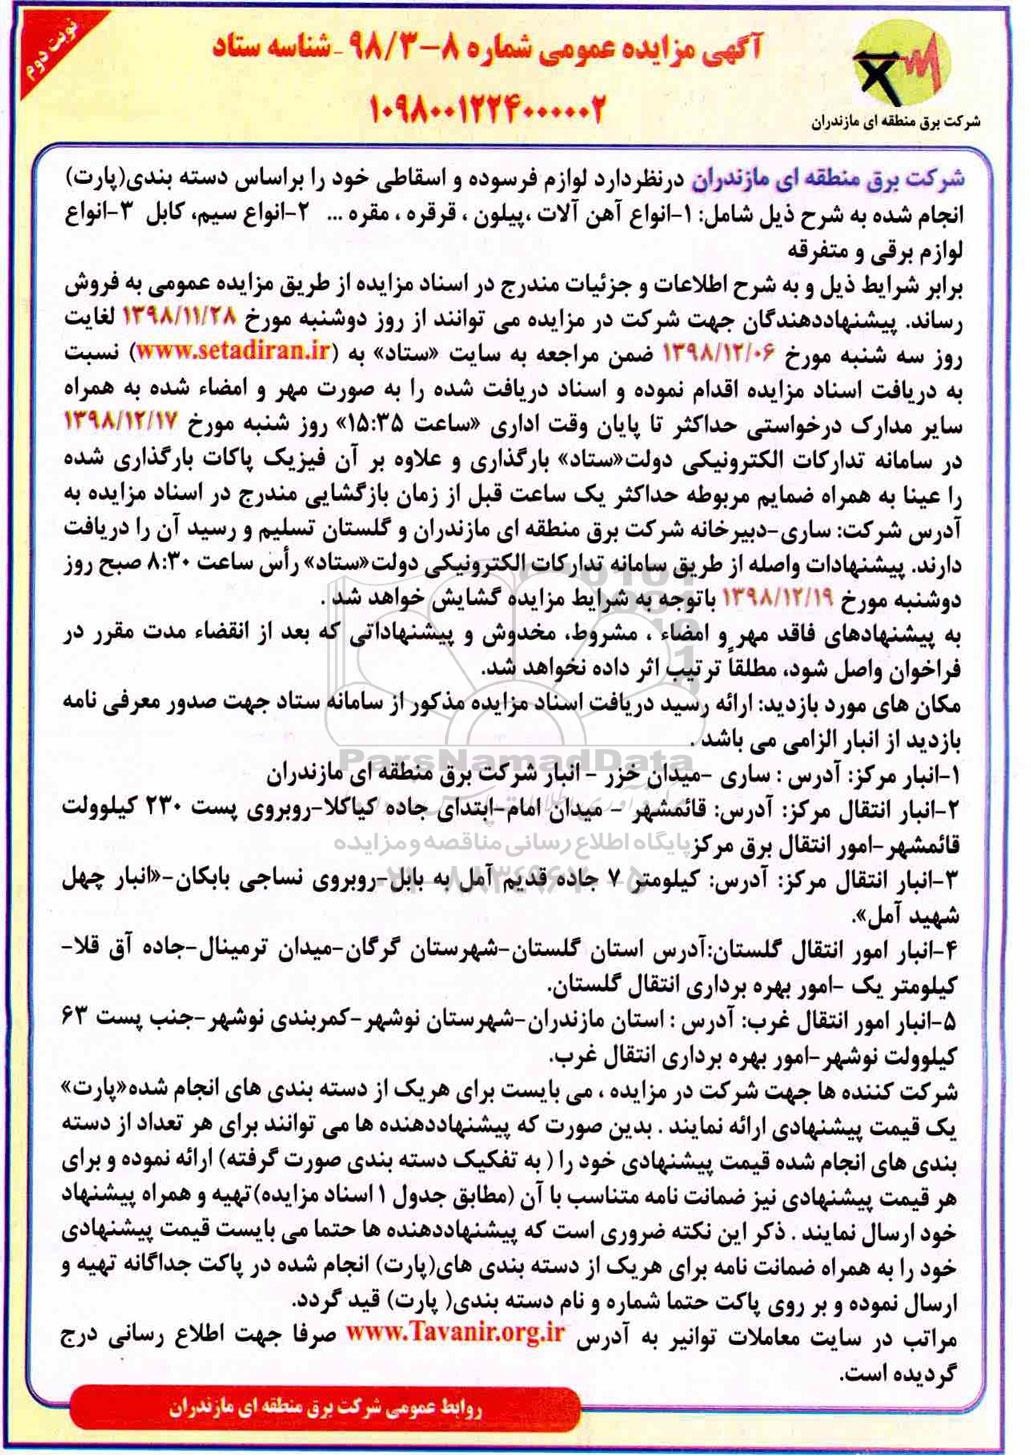 نوبت دوم
آگهی مزایده عمومی شماره ۸-۹۸/۳ - شناسه ستاد
۱۰۹۸۰۰۱۲۲۴۰۰۰۰۰۲
شرکت برق منطقه ای مازندران
شرکت برق منطقه ای مازندران درنظردارد لوازم فرسوده و اسقاطی خود را براساس دسته بندی(پارت)
انجام شده به شرح ذیل شامل: ۱-انواع آهن آلات ،پیلون ، قرقره ، مقره ... ۲-انواع سیم، کابل ۳-انواع
لوازم برقی و متفرقه
برابر شرایط ذیل و به شرح اطلاعات و جزئیات مندرج در اسناد مزایده از طریق مزایده عمومی به فروش
رساند. پیشنهاددهندگان جهت شرکت در مزایده می توانند از روز دوشنبه مورخ ۱۳۹۸/۱۱/۲۸ لغایت
روز سه شنبه مورخ ۱۳۹۸/۱۲/۰۶ ضمن مراجعه به سایت «ستاد» به (www.setadiran.ir) نسبت
به دریافت اسناد مزایده اقدام نموده و اسناد دریافت شده را به صورت مهر و امضاء شده به همراه
سایر مدارک درخواستی حداکثر تا پایان وقت اداری «ساعت ۱۵:۳۵» روز شنبه مورخ ۱۳۹۸/۱۲/۱۷
در سامانه تدارکات الکترونیکی دولت«ستاد» بارگذاری و علاوه بر آن فیزیک پاکات بارگذاری شده
را عینا به همراه ضمایم مربوطه حداکثر یک ساعت قبل از زمان بازگشایی مندرج در اسناد مزایده به
آدرس شرکت: ساری-دبیرخانه شرکت برق منطقه ای مازندران و گلستان تسلیم و رسید آن را دریافت
دارند. پیشنهادات واصله از طریق سامانه تدارکات الکترونیکی دولت«ستاد» رأس ساعت ۸:۳۰ صبح روز
دوشنبه مورخ ۱۳۹۸/۱۲/۱۹ باتوجه به شرایط مزایده گشایش خواهد شد .
به پیشنهادهای فاقد مهر و امضاء ، مشروط، مخدوش و پیشنهاداتی که بعد از انقضاء مدت مقرر در
فراخوان واصل شود، مطلقاً ترتیب اثر داده نخواهد شد.
مکان های مورد بازدید: ارائه رسید دریافت اسناد مزایده مذکور از سامانه ستاد جهت صدور معرفی نامه
بازدید از انبار الزامی می باشد .
ParsNamadData
۱-انبار مرکز: آدرس : ساری -میدان خزر - انبار شرکت برق منطقه ای مازندران
۲-انبار انتقال مرکز: آدرس: قائمشهر - میدان امام-ابتدای جاده کیاکلا-روبروی پست ۲۳۰ کیلوولت
قائمشهر-امور انتقال برق مرکز
پایگاه اطلاع رسانی مناقصه و مزایده
۳-انبار انتقال مرکز: آدرس: کیلومتر ۷ جاده قدیم آمل به بابل-روبروی نساجی بابکان-«انبار چهل
۰۲۱-۸۸۳۴۹۶۷۰-۵
شهید آمل».
۴-انبار امور انتقال گلستان:آدرس استان گلستان-شهرستان گرگان-میدان ترمینال-جاده آق قلا-
کیلومتر یک -امور بهره برداری انتقال گلستان.
۵-انبار امور انتقال غرب: آدرس : استان مازندران-شهرستان نوشهر-کمربندی نوشهر-جنب پست ۶۳
کیلوولت نوشهر-امور بهره برداری انتقال غرب.
شرکت کننده ها جهت شرکت در مزایده ، می بایست برای هریک از دسته بندی های انجام شده«پارت»
یک قیمت پیشنهادی ارائه نمایند . بدین صورت که پیشنهاددهنده ها می توانند برای هر تعداد از دسته
بندی های انجام شده قیمت پیشنهادی خود را ( به تفکیک دسته بندی صورت گرفته) ارائه نموده و برای
هر قیمت پیشنهادی نیز ضمانت نامه متناسب با آن (مطابق جدول ۱ اسناد مزایده)تهیه و همراه پیشنهاد
خود ارسال نمایند . ذکر این نکته ضروری است که پیشنهاددهنده ها حتما می بایست قیمت پیشنهادی
خود را به همراه ضمانت نامه برای هریک از دسته بندی های(پارت) انجام شده در پاکت جداگانه تهیه و
ارسال نموده و بر روی پاکت حتما شماره و نام دسته بندی( پارت) قید گردد.
مراتب در سایت معاملات توانیر به آدرس www.Tavanir.org.ir صرفا جهت اطلاع رسانی درج
گردیده است.
روابط عمومی شرکت برق منطقه ای مازندران